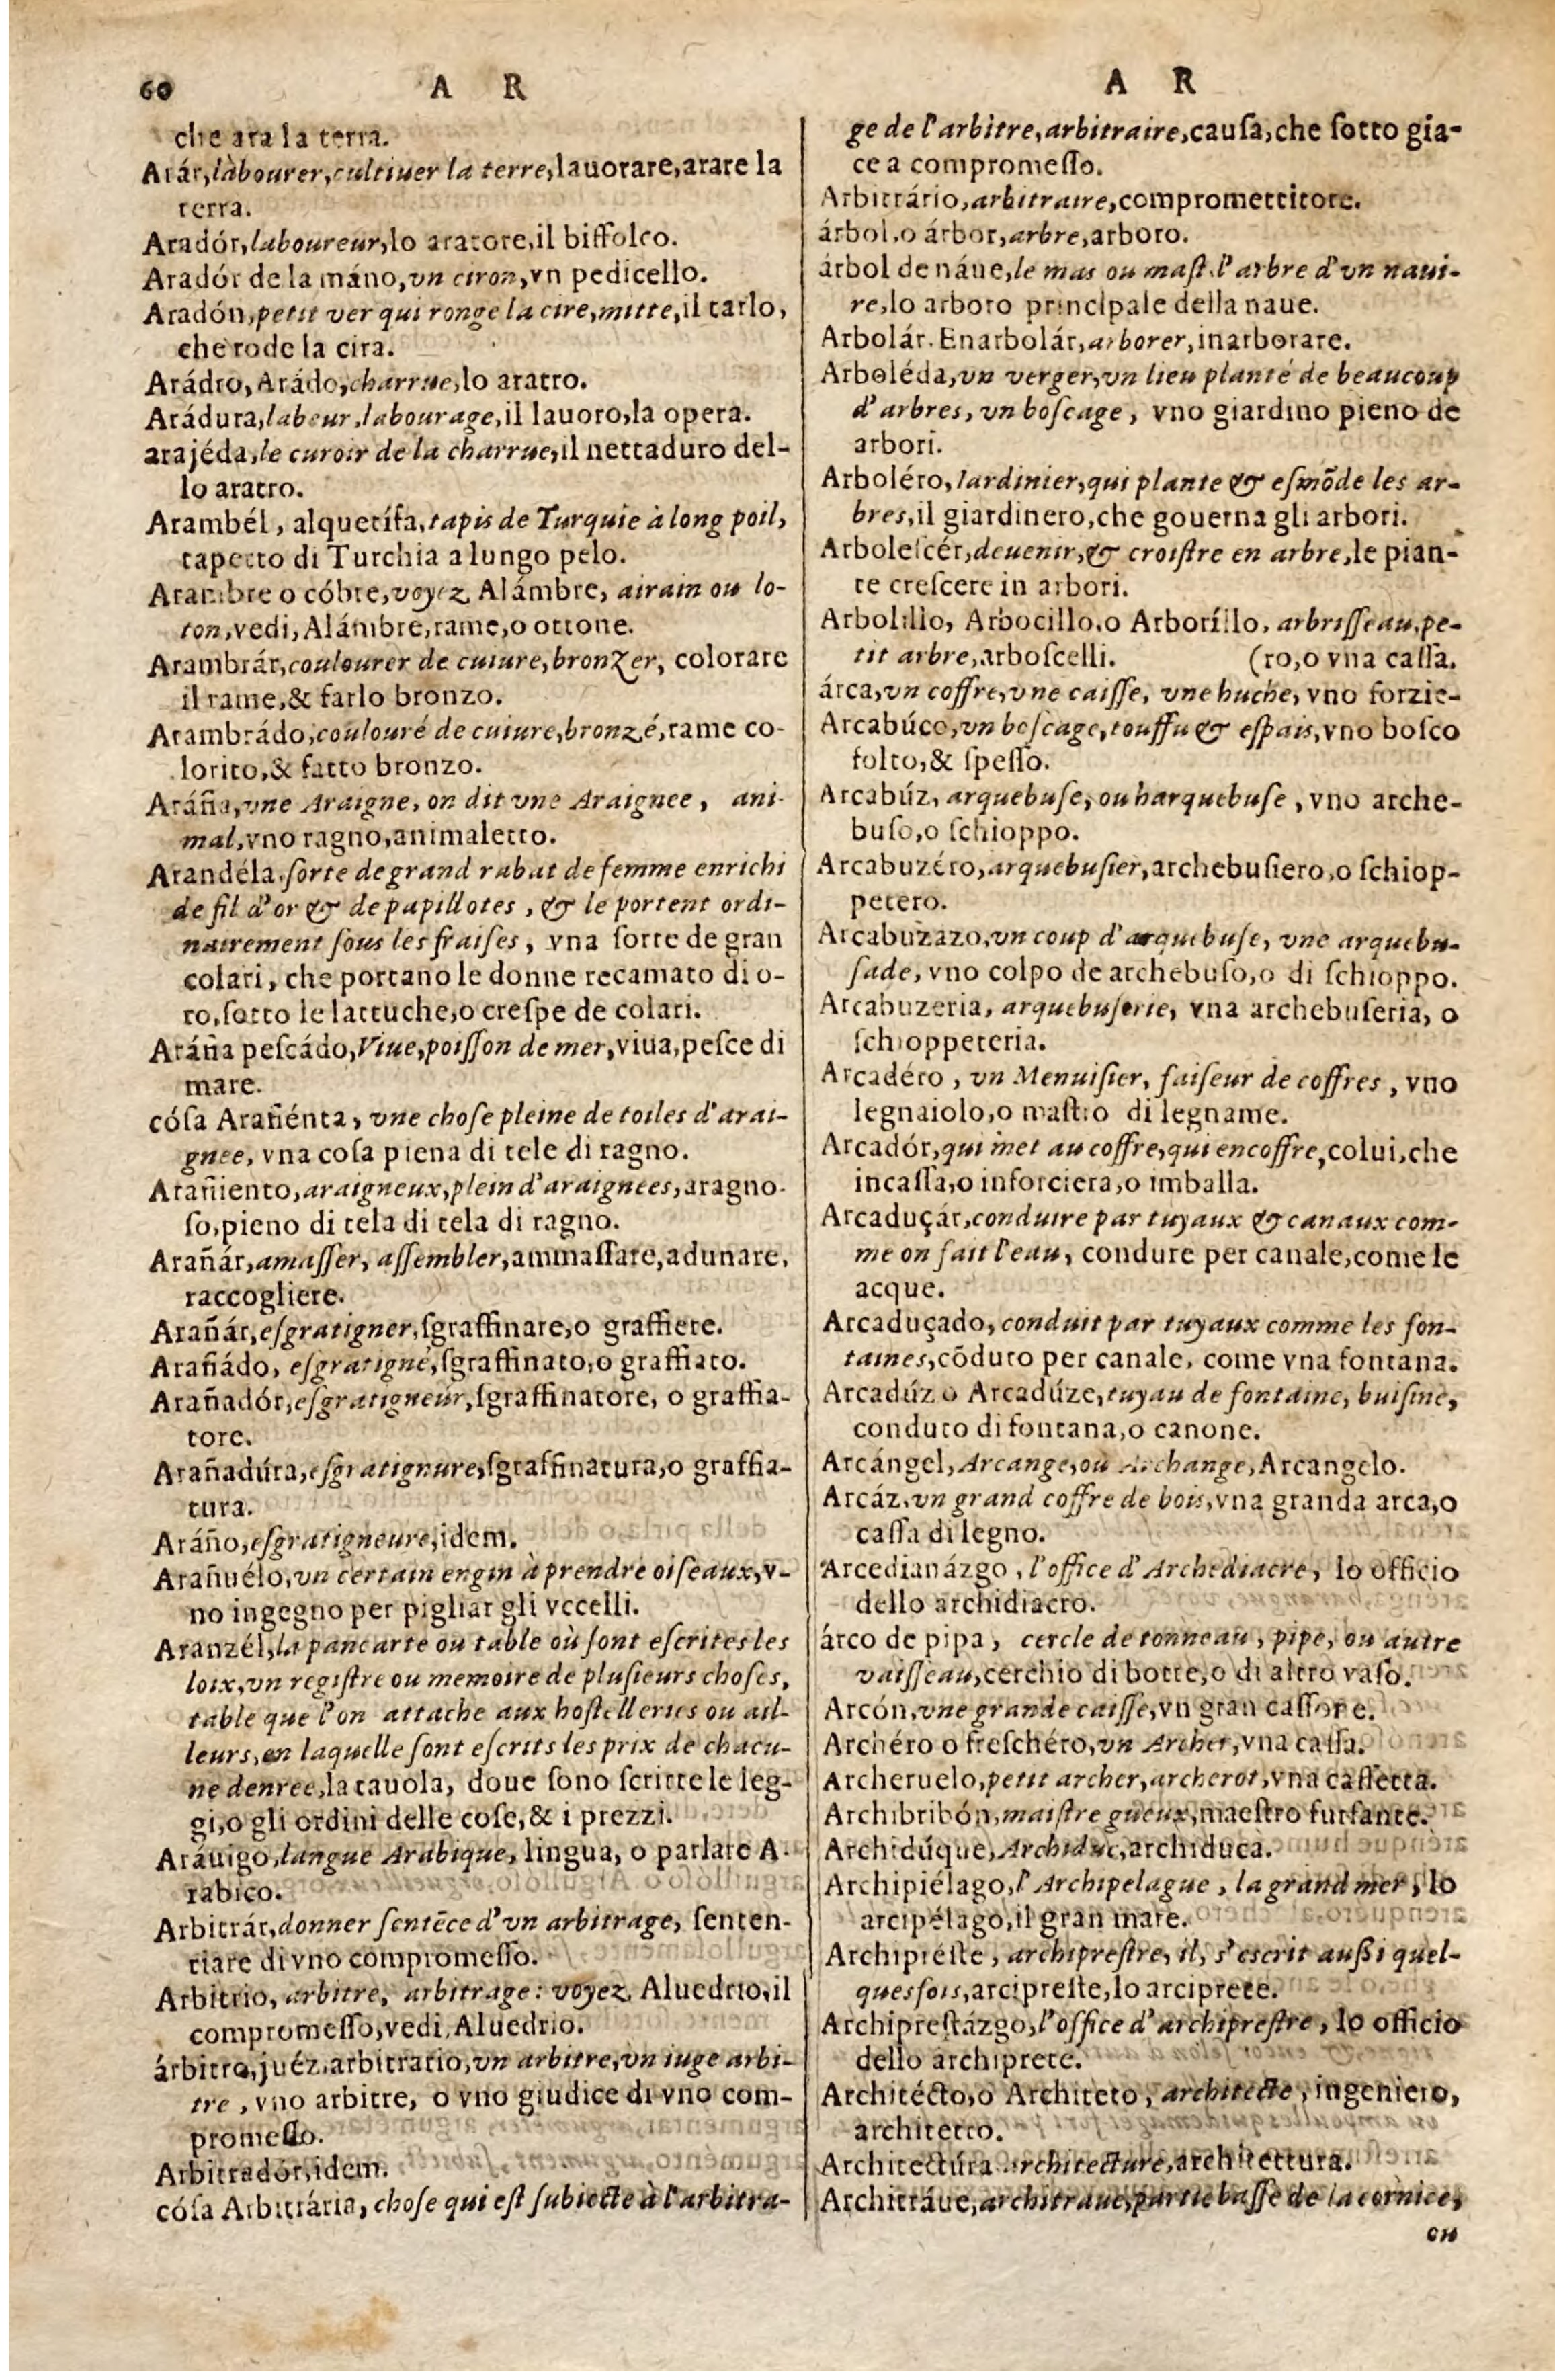 60 A R
che ara la terra.
Arár,làbourer,cultiuer la terre,lauorare,arare la
terra.
Aradór,laboureur,lo aratore,il biffolco.
Aradór de la máno,vn ciron,vn pedicello.
Aradón,petit ver qui ronge la cire,mitte,il tarlo,
che rode la cira.
Arádro,Arádo,charrue,lo aratro.
Arádura,labeur,labourage,il lauoro,la opera.
arajéda,le curoir de la charrue,il nettaduro del-
lo aratro.
Arambél, alquetífa,tapis de Turquie à long poil,
tapetto di Turchia a lungo pelo.
Arambre o cóbre,voyez Alámbre, airain ou lo-
ton,vedi,Alámbre,rame,o ottone.
Arambrár,coulourer de cuiure,bronZer, colorare
il rame,& farlo bronzo.
Arambrádo,coulouré de cuiure,bronzé,rame co-
lorito,& fatto bronzo.
Aráña,vne Araigne, on dit vne Araignee, ani-
mal,vno ragno,animaletto.
Arandéla.ſorte de grand rabat de femme enrichi
de fil d'or & de papillotes, & le portent ordi-
nairement ſous les fraiſes, vna ſorte de gran
colari, che portano le donne recamato di o-
ro,ſotto le lattuche,o creſpe de colari.
Aráña peſcádo,Viue,poiſſon de mer,viua,peſce di
mare.
cóſa Arañénta, vne choſe pleine de toiles d'arai-
gnee, vna coſa piena di tele di ragno.
Arañiento,araigneux,plein d'araignees,aragno-
ſo,pieno di tela di tela di ragno.
Arañár,amaſſer, aſſembler,ammaſſare,adunare,
raccogliere.
Arañár,eſgratigner,ſgraffinare,o graffiere.
Arañádo, eſgratigné,ſgraffinato,o graffiato.
Arañadór,eſgratigneur,ſgraffinatore, o graffia-
tore.
Arañadúra,eſgratignure,ſgraffinatura,o graffia-
tura.
Aráño,eſgratigneure,idem.
Arañuélo,vn certain engin à prendre oiſeaux,v-
no ingegno per pigliar gli vccelli.
Aranzél,la pancarte ou table où ſont eſcrites les
loix,vn regiſtre ou memoire de pluſieurs choſes,
table que l'on attache aux hoſtelleries ou ail-
leurs,en laquelle ſont eſcrits les prix de chacu-
ne denree,la tauola, doue ſono ſcritte le leg-
gi,o gli ordini delle coſe,& i prezzi.
Aráuigo,langue Arabique, lingua, o parlare A-
rabico.
Arbitrár,donner ſentẽce d'vn arbitrage, ſenten-
tiare di vno compromeſſo.
Arbitrio, arbitre, arbitrage: voyez Aluedrio,il
compromeſſo,vedi,Aluedrio.
árbitro,juéz,arbitrario,vn arbitre,vn iuge arbi-
tre, vno arbitre, o vno giudice di vno com-
promeſſo.
Arbitradór,idem.
cóſa Arbitrária, choſe qui eſt ſubiecte à l'arbitra-
A R
ge de l'arbitre,arbitraire,cauſa,che ſotto gia-
ce a compromeſſo.
Arbitrário,arbitraire,compromettitore.
árbol,o árbor,arbre,arboro.
árbol de náue,le mas ou maſt,l'arbre d'vn naui-
re,lo arboro principale della naue.
Arbolár.Enarbolár,arborer,inarborare.
Arboléda,vn verger,vn lieu planté de beaucoup
d'arbres, vn boſcage, vno giardino pieno de
arbori.
Arboléro,Iardinier,qui plante & eſmõde les ar-
bres,il giardinero,che gouerna gli arbori.
Arboleſcér,deuenir,& croiſtre en arbre,le pian-
te creſcere in arbori.
Arbolillo, Arbocillo,o Arboríllo, arbriſſeau,pe-
tit arbre,arboſcelli. (ro,o vna caſſa.
árca,vn coffre,vne caiſſe, vne huche, vno forzie-
Arcabúco,vn boſcage,touffu & eſpais,vno boſco
folto,& ſpeſſo.
Arcabúz, arquebuſe, ou harquebuſe, vno arche-
buſo,o ſchioppo.
Arcabuzéro,arquebuſier,archebuſiero,o ſchiop-
petero.
Arcabuzazo,vn coup d'arquebuſe, vne arquebu-
ſade, vno colpo de archebuſo,o di ſchioppo.
Arcabuzeria, arquebuſerie, vna archebuſeria, o
ſchioppeteria.
Arcadéro, vn Menuiſier, faiſeur de coffres, vno
legnaiolo,o maſtro di legname.
Arcadór,qui met au coffre,qui encoffre,colui,che
incaſſa,o inforciera,o imballa.
Arcaduçár,conduire par tuyaux & canaux com-
me on fait l'eau, condure per canale,come le
acque.
Arcaduçado, conduit par tuyaux comme les fon-
taines,cõduto per canale, come vna fontana.
Arcadúz o Arcadúze,tuyau de fontaine, buiſine,
conduto di fontana,o canone.
Arcángel,Arcange,ou Archange,Arcangelo.
Arcáz,vn grand coffre de bois,vna granda arca,o
caſſa di legno.
Arcedianázgo, l'office d'Archediacre, lo officio
dello archidiacro.
árco de pipa, cercle de tonneau, pipe, ou autre
vaiſſeau,cerchio di botte,o di altro vaſo.
Arcón,vne grande caiſſe,vn gran caſſone.
Archéro o freſchéro,vn Archer,vna caſſa.
Archeruelo,petit archer,archerot,vna caſſetta.
Archibribón,maiſtre gueux,maeſtro furfante.
Archidúque,Archiduc,archiduca.
Archipiélago,l'Archipelague, la grand mer, lo
arcipélago,il gran mare.
Archipréſte, archipreſtre, il, s'eſcrit auſſi quel-
quesfois,arcipreſte,lo arciprete.
Archipreſtázgo,l'office d'archipreſtre, lo officio
dello archiprete.
Architécto,o Architeto, architecte, ingeniero,
architetto.
Architectúra architecture,architettura.
Architráue,architraue,partie baſſe de la cornice,
en